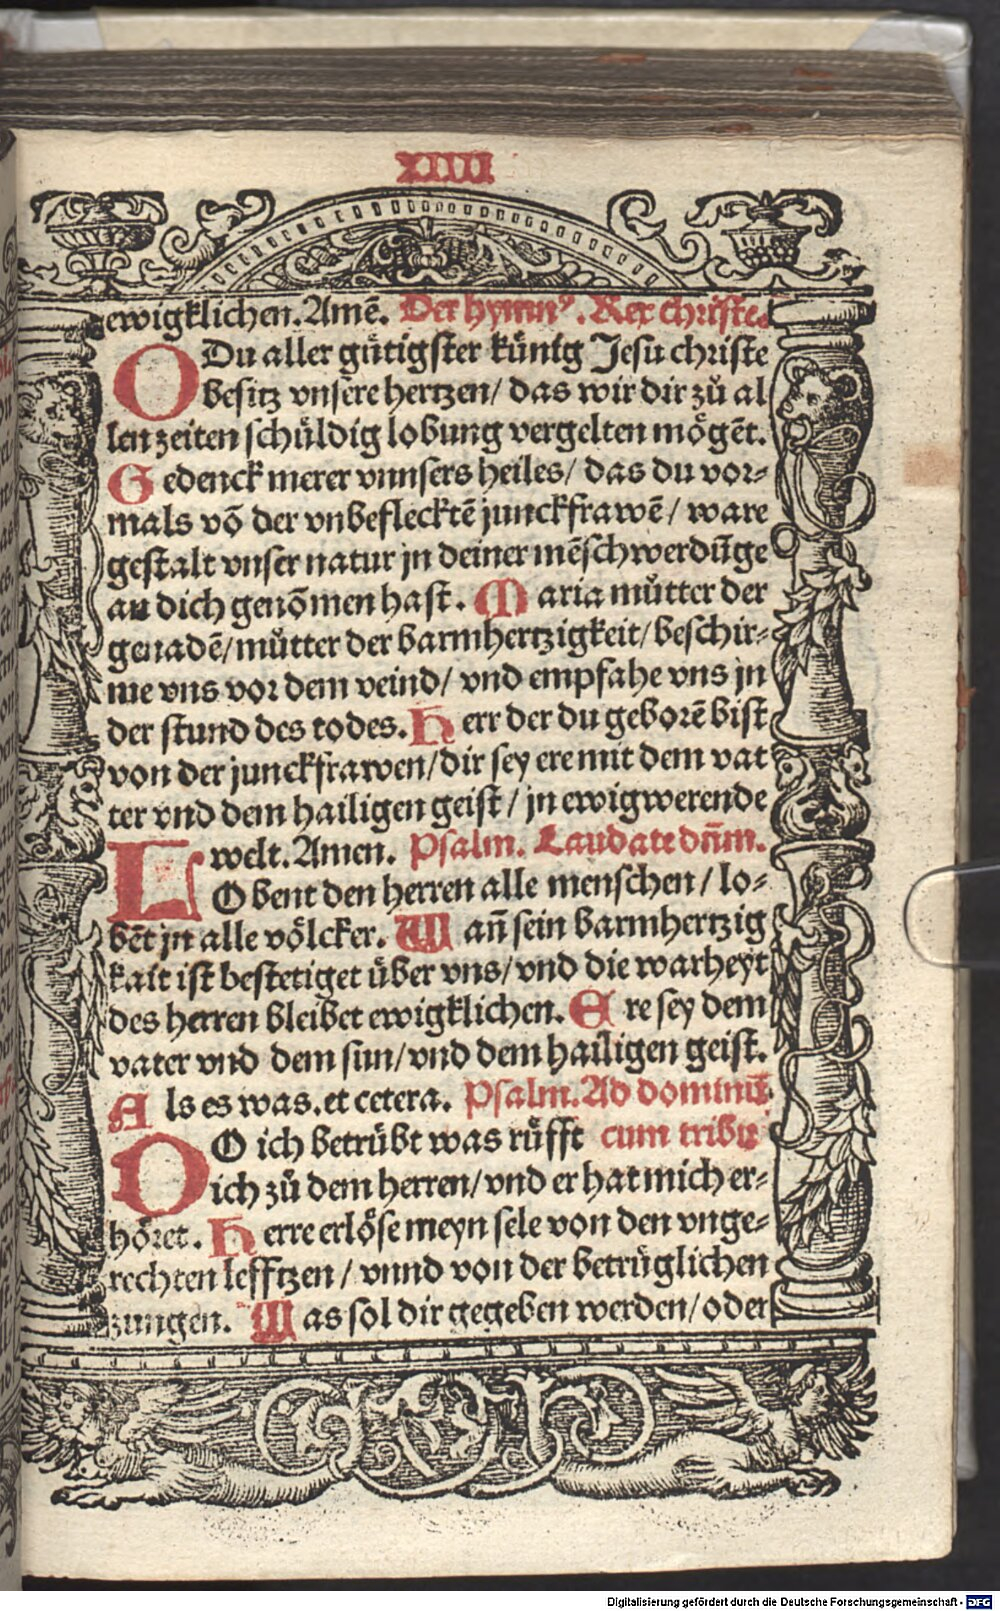 XIIII
ewigklichen. Amē. Der hymnꝰ. Rex christe.
O Du aller gütigster künig Jesu christe
besitz vnsere hertzen/ das wir dir zů al
len zeiten schüldig lobung vergelten mögēt.
Gedenck merer vnnsers heiles/ das du vor⸗
mals võ der vnbeflecktē junckfrawē/ ware
gestalt vnser natur jn deiner mēschwerdūge
an dich genõmen hast. Maria můtter der
genadē/ můtter der barmhertzigkeit/ beschir⸗
me vns vor dem veind/ vnd empfahe vns jn
der stund des todes. Herr der du geborē bist
von der junckfrawen/ dir sey ere mit dem vat
ter vnd dem hailigen geist/ jn ewigwerende
welt. Amen. Psalm. Laudate dn̄m.
LObent den herren alle menschen/ lo⸗
bēt jn alle völcker. Wan̄ sein barmhertzig
kait ist bestetiget über vns/ vnd die warheyt
des herren bleibet ewigklichen. Ere sey dem
vater vnd dem sun/ vnd dem hailigen geist.
Als es was. et cetera. Psalm. Ad dominū
OO ich betrübt was růfft cum tribu
ich zů dem herren/ vnd er hat mich er⸗
höret. Herre erlöse meyn sele von den vnge⸗
rechten lefftzen/ vnnd von der betrüglichen
zungen. Was sol dir gegeben werden/ oder
Digitalisierung gefördert durch die Deutsche Forschungsgemeinschaft - DFG